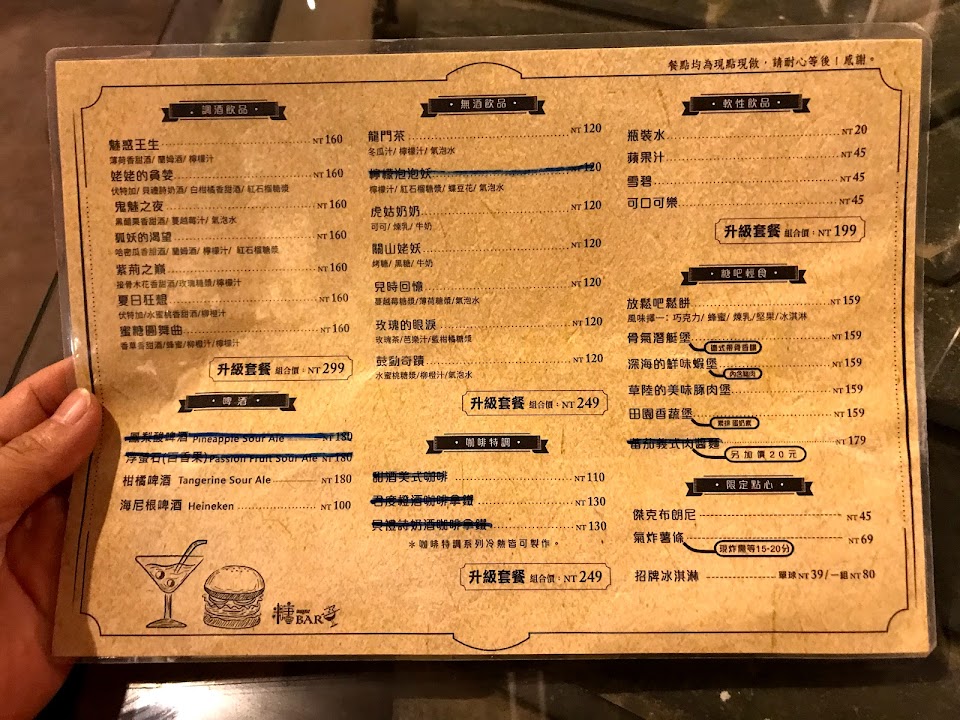 餐點均為現點現做，請耐心等後！感謝。
調酒飲品
魅惑王生 NT 160
薄荷香甜酒/ 蘭姆酒/ 檸檬汁
姥姥的貪婪 NT 160
伏特加/ 貝禮詩奶酒/ 白柑橘香甜酒/ 紅石榴糖漿
鬼魅之夜 NT 160
黑醋栗香甜酒/ 蔓越莓汁/ 氣泡水
狐妖的渴望 NT 160
哈密瓜香甜酒/ 蘭姆酒/ 檸檬汁/ 紅石榴糖漿
紫荊之巔 NT 160
接骨木花香甜酒/玫瑰糖漿/檸檬汁
夏日狂想 NT 160
伏特加/水蜜桃香甜酒/柳橙汁
蜜糖圓舞曲 NT 160
香草香甜酒/蜂蜜/柳橙汁/檸檬汁
升級套餐 組合價：NT 299
啤酒
鳳梨酸啤酒 Pineapple Sour Ale NT 180
浮螢石(百香果) Passion Fruit Sour Ale NT 180
柑橘啤酒 Tangerine Sour Ale NT 180
海尼根啤酒 Heineken NT 100
糖BAR
無酒飲品
龍門茶 NT 120
冬瓜汁/ 檸檬汁/ 氣泡水
檸檬泡泡妖 120
檸檬汁/ 紅石榴糖漿/ 蝶豆花/ 氣泡水
虎姑奶奶 NT 120
可可/ 煉乳/ 牛奶
關山姥妖 NT 120
烤糖/ 黑糖/ 牛奶
兒時回憶 NT 120
蔓越莓糖漿/薄荷糖漿/氣泡水
玫瑰的眼淚 NT 120
玫瑰茶/芭樂汁/藍柑橘糖漿
鼓動奇蹟 NT 120
水蜜桃糖漿/柳橙汁/氣泡水
升級套餐 組合價：NT 249
咖啡特調
甜酒美式咖啡 NT 110
君度橙酒咖啡拿鐵 NT 130
貝禮詩奶酒咖啡拿鐵 NT 130
＊咖啡特調系列冷熱皆可製作。
升級套餐 組合價：NT 249
軟性飲品
瓶裝水 NT 20
蘋果汁 NT 45
雪碧 NT 45
可口可樂 NT 45
升級套餐 組合價：NT 199
糖吧輕食
放鬆吧鬆餅 NT 159
風味擇一：巧克力/ 蜂蜜/ 煉乳/堅果/冰淇淋
骨氣潛艇堡 NT 159
德式帶骨香腸
深海的鮮味蝦堡 NT 159
內含豬肉
草陸的美味豚肉堡 NT 159
田園香蔬堡 NT 159
素排 蛋奶素
番茄義式肉醬麵 NT 179
另加價20元
限定點心
傑克布朗尼 NT 45
氣炸薯條 NT 69
現炸需等15-20分
招牌冰淇淋 單球 NT 39/一組 NT 80